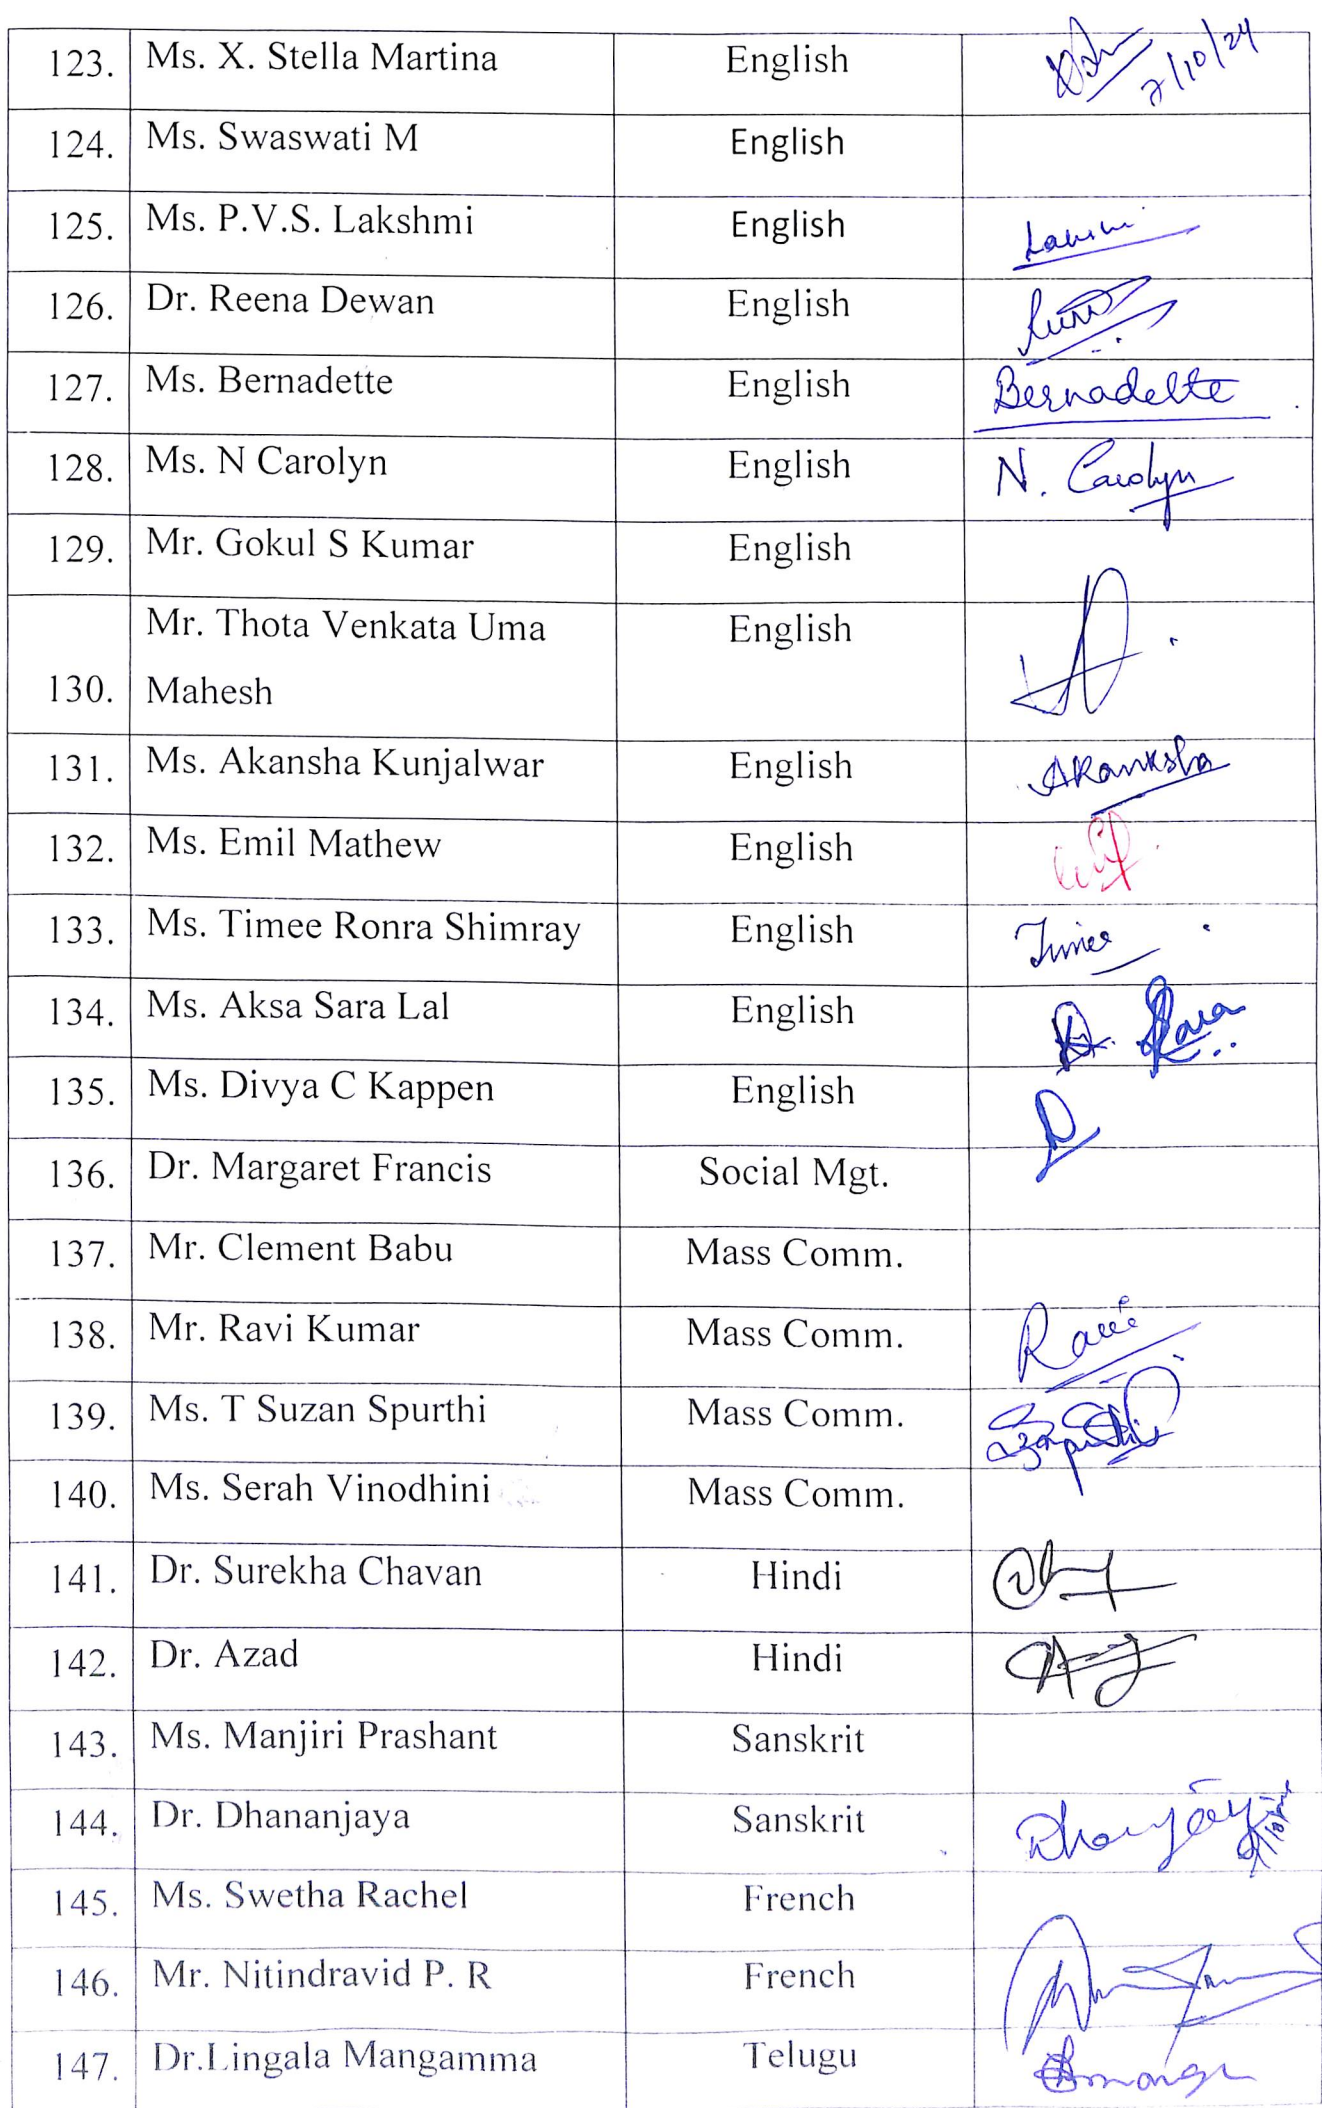 123. Ms. X. Stella Martina English 7/10/24
124. Ms. Swaswati M English
125. Ms. P.V.S. Lakshmi English
126. Dr. Reena Dewan English
127. Ms. Bernadette English Bernadette
128. Ms. N Carolyn English N. Carolyn
129. Mr. Gokul S Kumar English
Mr. Thota Venkata Uma English
130. Mahesh
131. Ms. Akansha Kunjalwar English Akanksha
132. Ms. Emil Mathew English
133. Ms. Timee Ronra Shimray English Timee
134. Ms. Aksa Sara Lal English
135. Ms. Divya C Kappen English
136. Dr. Margaret Francis Social Mgt.
137. Mr. Clement Babu Mass Comm.
138. Mr. Ravi Kumar Mass Comm. Ravi
139. Ms. T Suzan Spurthi Mass Comm.
140. Ms. Serah Vinodhini Mass Comm.
141. Dr. Surekha Chavan Hindi
142. Dr. Azad Hindi
143. Ms. Manjiri Prashant Sanskrit
144. Dr. Dhananjaya Sanskrit
145. Ms. Swetha Rachel French
146. Mr. Nitindravid P. R French
147. Dr.Lingala Mangamma Telugu